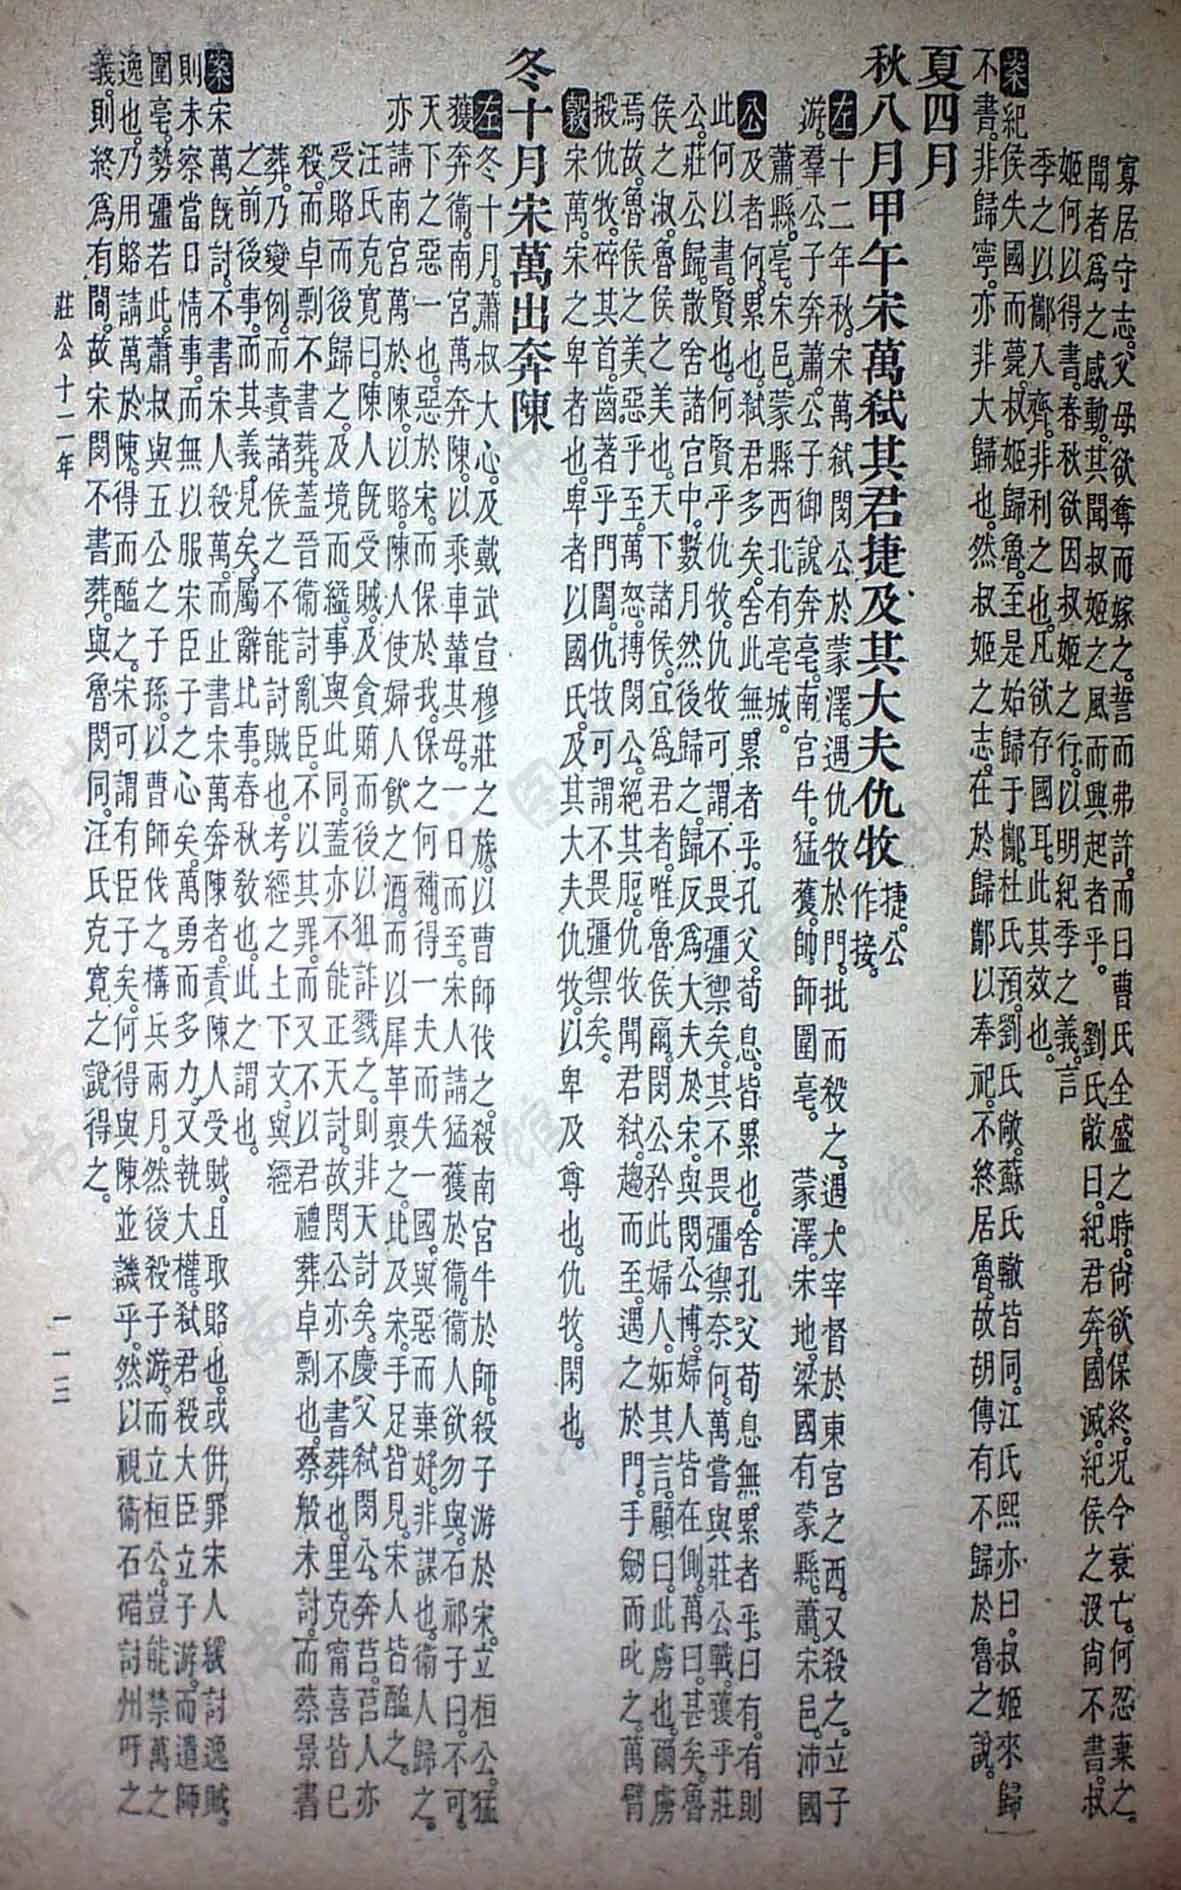 寡居守志。父母欲奪而嫁之。誓而弗許。而曰曹氏全盛之時。尙欲保終。況今衰亡。何忍棄之。
聞者爲之感動。其聞叔姬之風而興起者乎。 劉氏敞曰。紀君奔。國滅。紀侯之歿尙不書。叔
姬何以得書。春秋欲因叔姬之行。以明紀季之義。言
季之以酅入齊。非利之也。凡欲存國耳。此其效也。
案紀侯失國而薨。叔姬歸魯。至是始歸于酅。杜氏預。劉氏敞。蘇氏轍皆同。江氏熙亦曰。叔姬來歸
不書。非歸寧。亦非大歸也。然叔姬之志。在於歸酅以奉祀。不終居魯。故胡傳有不歸於魯之說。
夏四月
秋八月甲午宋萬弒其君捷及其大夫仇牧捷。公作接。
左十二年秋。宋萬弒閔公於蒙澤。遇仇牧於門。批而殺之。遇大宰督於東宮之西。又殺之。立子
游。羣公子奔蕭。公子御說奔亳。南宮牛。猛獲。帥師圍亳。 蒙澤。宋地。梁國有蒙縣。蕭。宋邑。沛國
蕭縣。亳。宋邑。蒙縣西北有亳城。
公及者何。累也。弒君多矣。舍此無累者乎。孔父。荀息。皆累也。舍孔父荀息無累者乎。曰有。有則
此何以書。賢也。何賢乎仇牧。仇牧可謂不畏彊禦矣。其不畏彊禦奈何。萬嘗與莊公戰。獲乎莊
公。莊公歸。散舍諸宮中。數月然後歸之。歸反爲大夫於宋。與閔公博。婦人皆在側。萬曰。甚矣。魯
侯之淑。魯侯之美也。天下諸侯。宜爲君者。唯魯侯爾。閔公矜此婦人。妬其言。顧曰。此虜也。爾虜
焉故。魯侯之美惡乎至。萬怒。搏閔公。絕其脰。仇牧聞君弒。趨而至。遇之於門。手劒而叱之。萬臂
摋仇牧。碎其首。齒著乎門闔。仇牧可謂不畏彊禦矣。
穀宋萬。宋之卑者也。卑者以國氏。及其大夫仇牧。以卑及尊也。仇牧。閑也。
冬十月宋萬出奔陳
左冬十月。蕭叔大心。及戴武宣穆莊之族。以曹師伐之。殺南宮牛於師。殺子游於宋。立桓公。猛
獲奔衞。南宮萬奔陳。以乘車輦其母。一日而至。宋人請猛獲於衞。衞人欲勿與。石祁子曰。不可。
天下之惡一也。惡於宋。而保於我。保之何補。得一夫而失一國。與惡而棄好。非謀也。衞人歸之。
亦請南宮萬於陳。以賂。陳人使婦人飮之酒。而以犀革裹之。比及宋。手足皆見。宋人皆醢之。
汪氏克寬曰。陳人旣受賊。及貪賄而後以狙詐戮之。則非天討矣。慶父弒閔公。奔莒。莒人亦
受賂而後歸之。及境而縊。事與此同。蓋亦不能正天討。故閔公亦不書葬也。里克甯喜皆已
殺。而卓剽不書葬。蓋晉衞討亂臣。不以其罪。而又不以君禮葬卓剽也。蔡般未討。而蔡景書
葬。乃變例。而責諸侯之不能討賊也。考經之上下文。與經
之前後事。而其義見矣。屬辭比事。春秋敎也。此之謂也。
案宋萬旣討。不書宋人殺萬。而止書宋萬奔陳者。責陳人受賊。且取賂也。或併罪宋人緩討逸賊。
則未察當日情事。而無以服宋臣子之心矣。萬勇而多力。又執大權。弒君殺大臣立子游。而遣師
圍亳。勢彊若此。蕭叔與五公之子孫。以曹師伐之。構兵兩月。然後殺子游。而立桓公。豈能禁萬之
逸也。乃用賂請萬於陳。得而醢之。宋可謂有臣子矣。何得與陳並譏乎。然以視衞石碏討州吁之
義。則終爲有間。故宋閔不書葬。與魯閔同。汪氏克寬之說得之。
莊公十二年
一一三